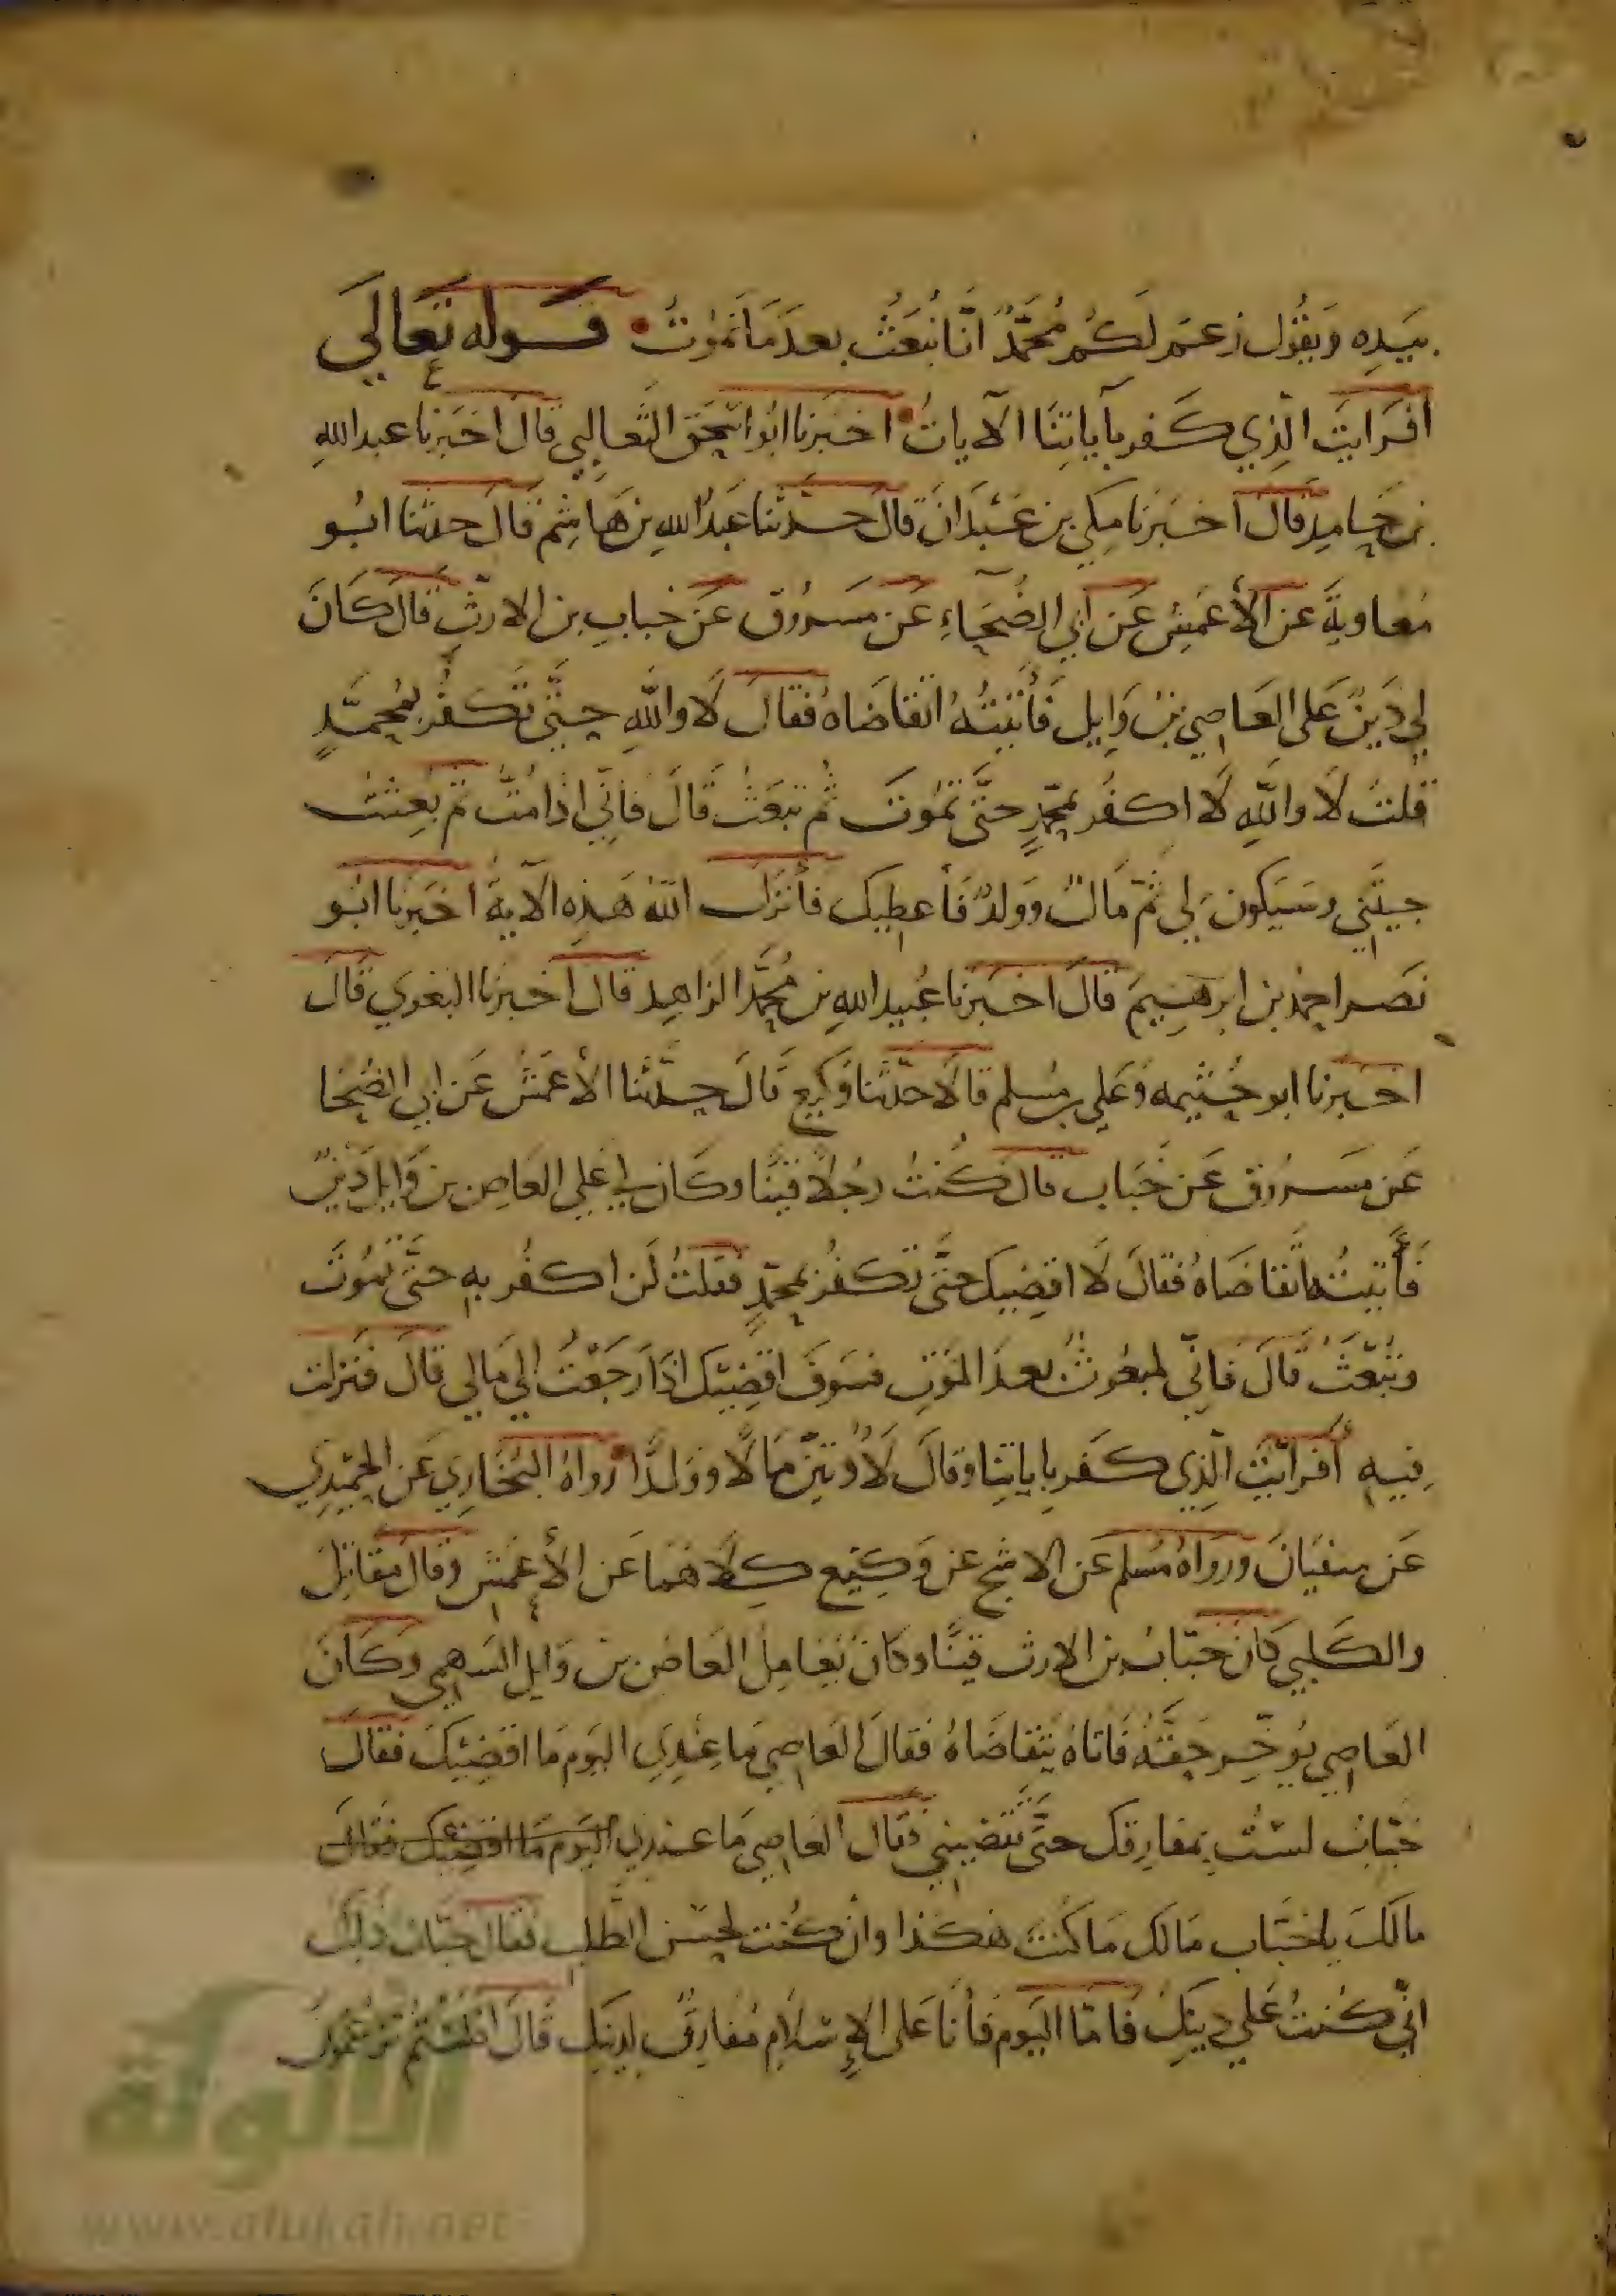 بيده ويقول زعم لكم محمد انا نبعث بعد ما نموت قوله تعالى
أفرايت الذي كفر بآياتنا الآيات اخبرنا ابو اسحق الثعالبي قال اخبرنا عبد الله
بن حامد قال اخبرنا مكي بن عبدان قال حدثنا عبد الله بن هاشم قال حدثنا ابو
معاوية عن الأعمش عن أبي الضحاء عن مسروق عن خباب بن الارت قال كان
لي دين على العاصي بن وايل فأتيته اتقاضاه فقال لا والله حتى تكفر بمحمد
قلت لا والله لا اكفر بمحمد حتى تموت ثم تبعث قال فاني اذا مت ثم بعثت
جيتني وسيكون لي ثم مال وولد فأعطيك فأنزل الله هذه الآية اخبرنا ابو
نصر احمد بن ابرهيم قال اخبرنا عبيد الله بن محمد الزاهد قال اخبرنا البغوي قال
اخبرنا ابو خيثمه وعلي بن مسلم قالا حدثنا وكيع قال حدثنا الأعمش عن ابي الضحا
عن مسروق عن خباب قال كنت رجلا قينا وكان لي على العاص بن وايل دين
فأتيته اتقاضاه فقال لا اقضيك حتى تكفر بمحمد فقلت لن اكفر به حتى تموت
وتبعث قال فاني لمبعوث بعد الموت فسوف اقضيك اذا رجعت الى مالي قال فنزلت
فيه أفرايت الذي كفر باياتنا وقال لأوتين مالا وولدا رواه البخاري عن الحميدي
عن سفيان ورواه مسلم عن الاشج عن وكيع كلاهما عن الأعمش وقال مقاتل
والكلبي كان خباب بن الارت قينا وكان يعامل العاص بن وايل السهمي وكان
العاصي يوخر حقه فاتاه يتقاضاه فقال العاصي ما عندي اليوم ما اقضيك فقال
خباب لست بمفارقك حتى تقضيني فقال العاصي ما عندي اليوم ما اقضيك فقال
مالك يا خباب مالك ما كنت هكذا وان كنت لحسن الطلب فقال خباب ذلك
اني كنت على دينك فاما اليوم فأنا على الإسلام مفارق لدينك قال افلستم تزعمون
الألوكة
www.alukah.net